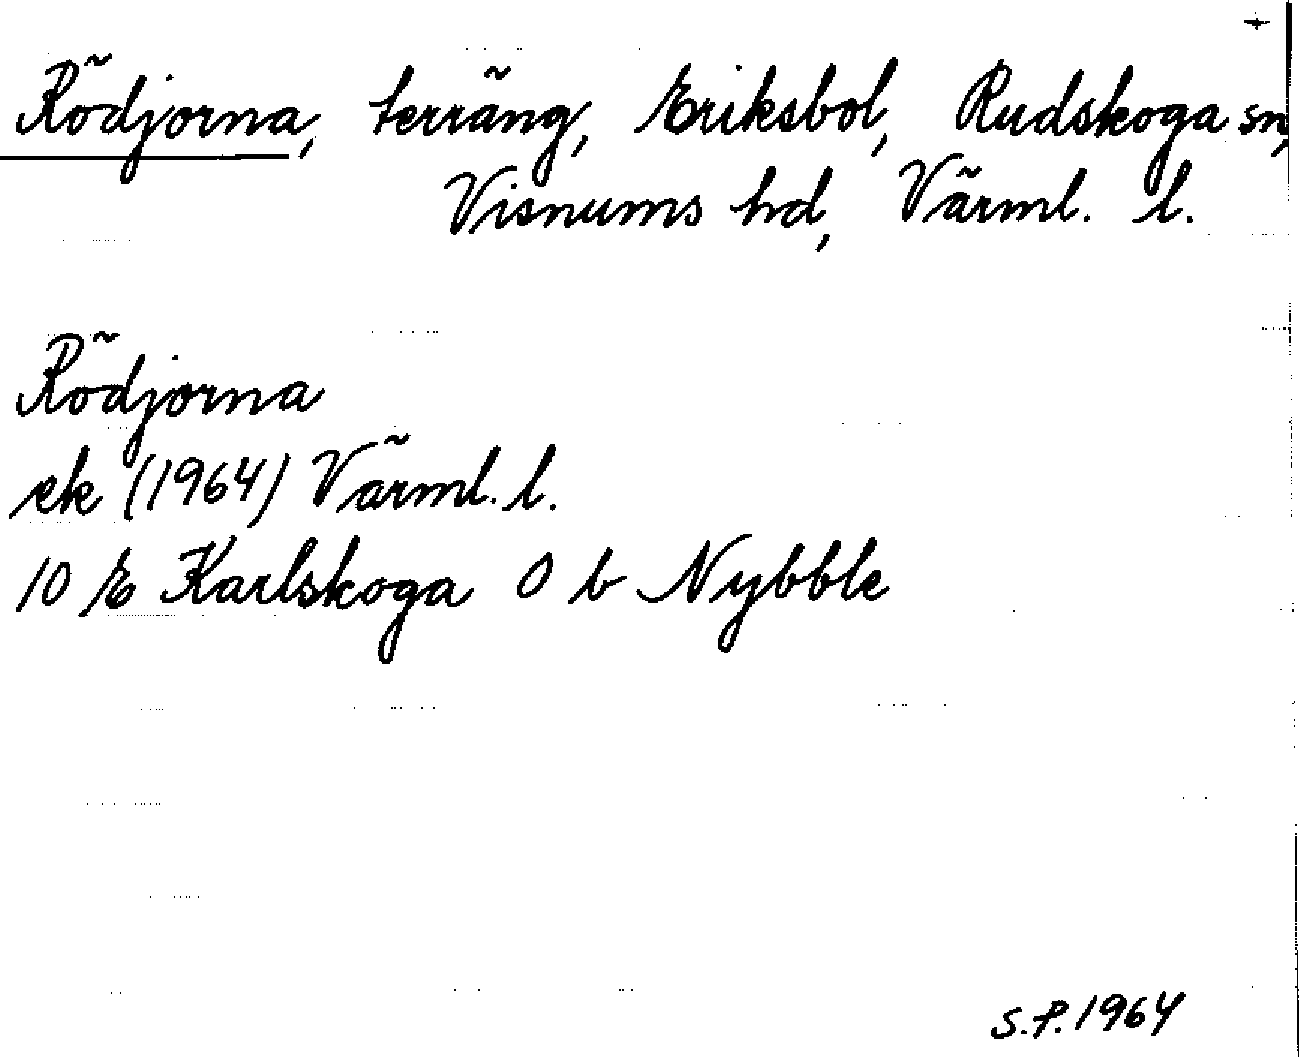 Rödjorna, terräng, Eriksbol, Rudskoga sn,
Visnums hd, Värml. l.
Rödjorna
ek (1964) Värml. l.
10 E Karlskoga 0 b Nybble
S.P. 1964